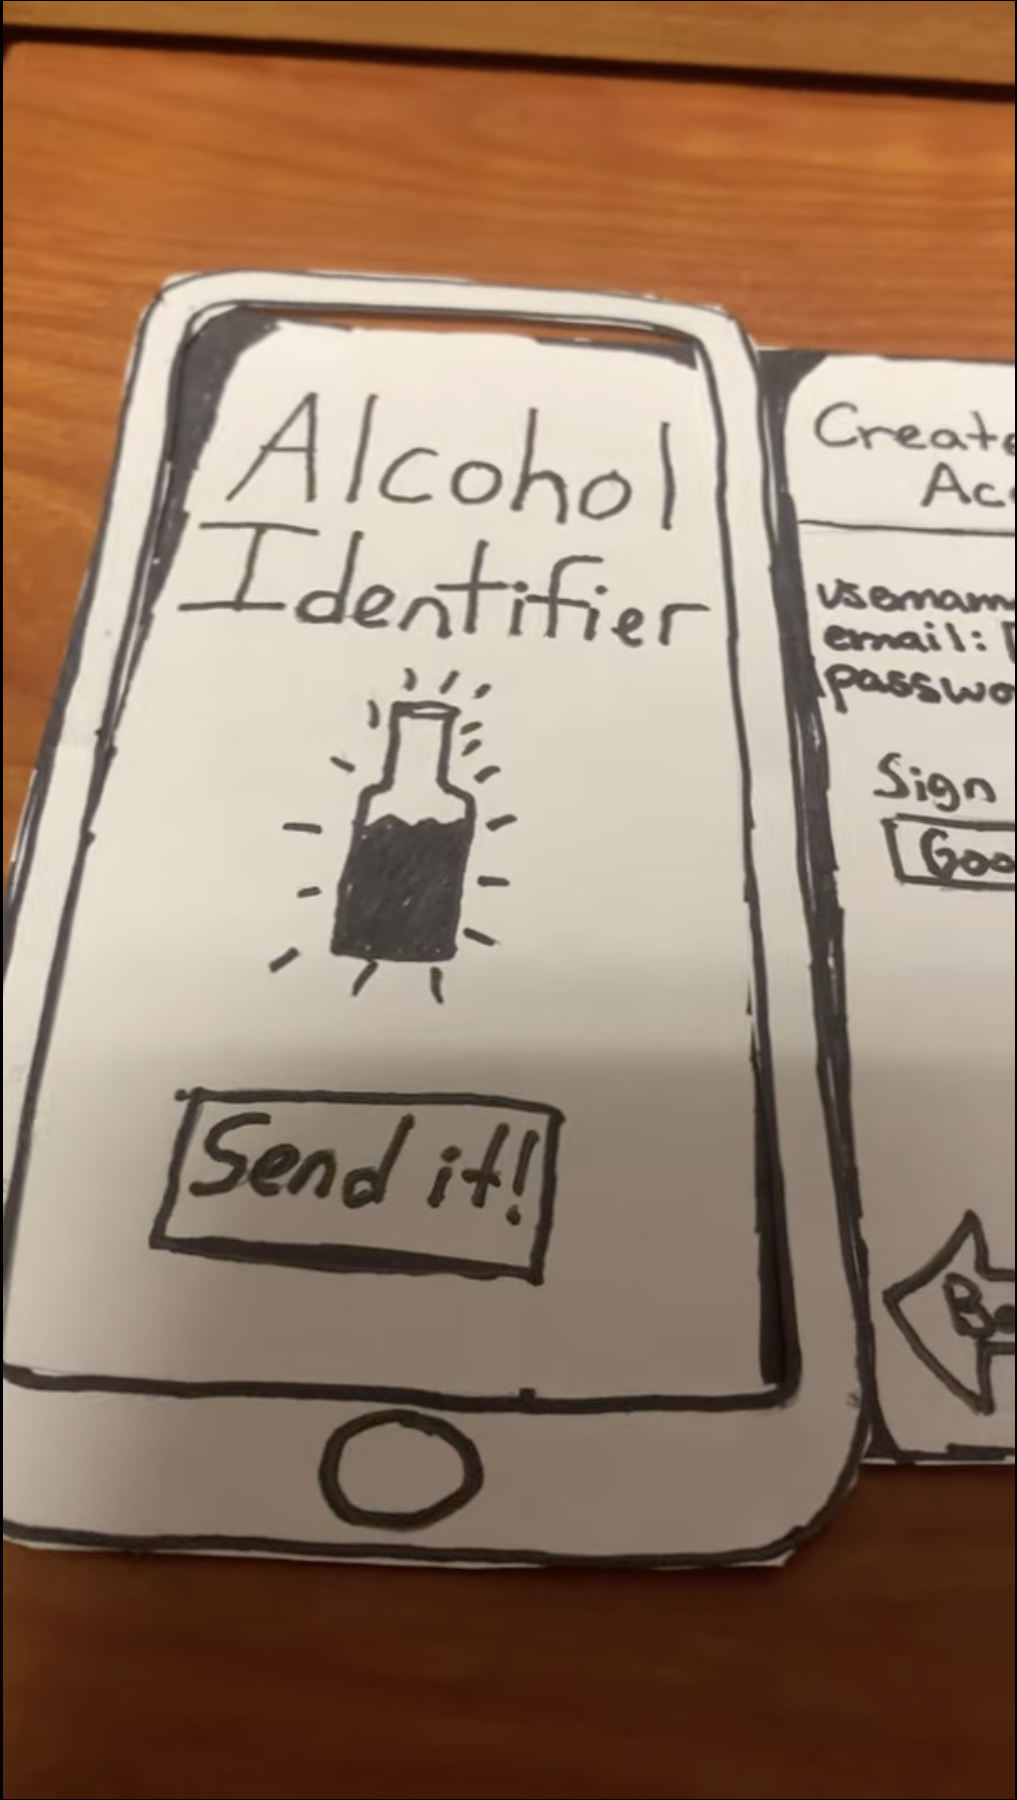 Alcohol
Identifier
Send it!
Create
Ac
usernam
email:
passwo
Sign
Goo